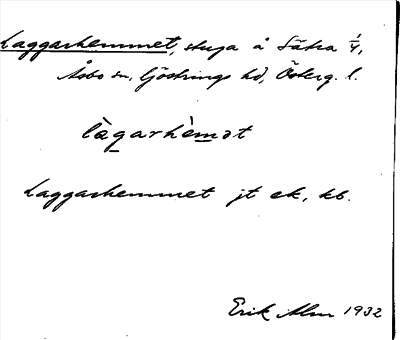 Laggarhemmet, stuga å Sätra 1/4,
Åsbo sn, Göstrings hd, Österg. l.
làgarhèmət
Laggarhemmet jt ek, kb.
Erik Alm 1932